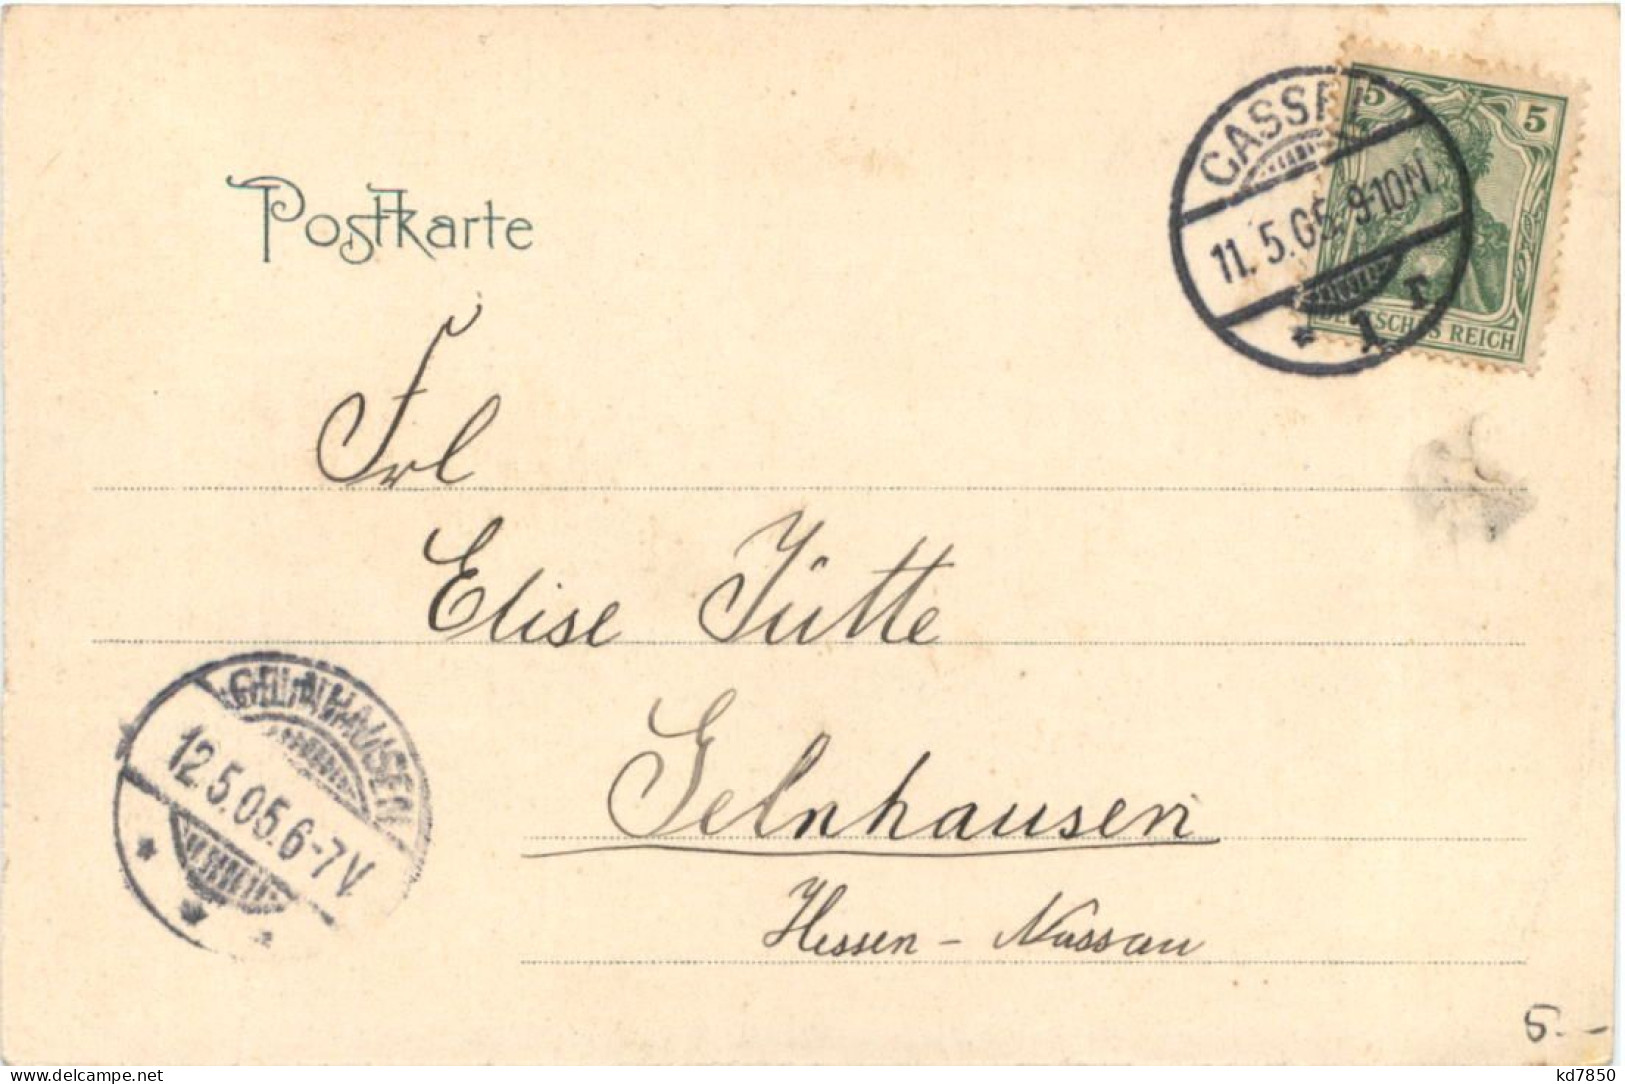 5 5
CASSEL
11.5.05.9-10N.
* 1 r
DEUTSCHES REICH
Postkarte
Frl
Elise Jütte
GELNHAUSEN
12.5.05.6-7V
Gelnhausen
Hessen - Nassau
5.-
kd7850